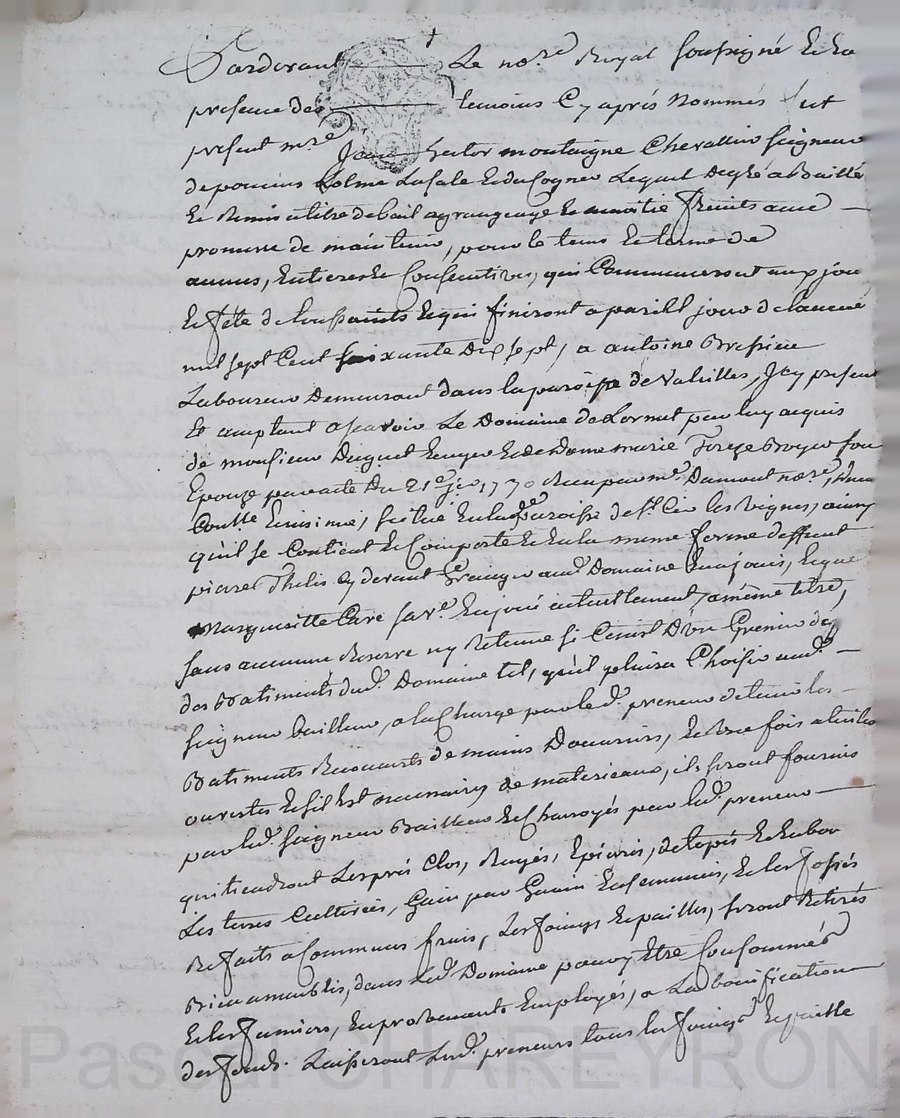 Pardevant Le no.re Royal soussigné Et En
presence des temoins Cy aprés Nommés fut
present m.re Jean hector montaigne Chevallier seigneur
de poncins Lolme Lasale Et du Cogner Lequel De gré a Baillé
Et Remis a titre de bail a grangeage Et a moitié fruits avec
promesse de maintenir, pour le tems Et terme de
annees, Entieres Et Consecutives, qui Commenceront aux jour
Et fête de toussaints Et qui finiront a pareil jour de Lannée
mil sept Cent soixante Dix sept, a antoine
Laboureur Demeurant dans la paroisse de Valeilles, Icy present
Et acceptant ascavoir Le Domaine de Lornet par luy acquis
de monsieur Duguet Ecuyer Et de Dame marie son
Epouze par acte Du 21e 1770 Receu par me Damont no.re,
situé En la paroisse de st Cir les Vignes, ainsy
qu'il se Contient Et Comporte Et En la meme forme deffunt
pierre Thelis Cy devant Granger aud. Domaine En a joui, Et que
Margueritte sa ve En joüi actuellement a même titre,
sans aucunne Reserve ny Retenue si Ce n'est D'un Grenier des
des Batiments dud. Domaine tel, qu'il plaira Choisir aud.
seigneur bailleur, a la Charge par led. preneur de tenir les
Batiments Recouverts de mains Douvriers, Et Une fois
Et s'il Est necessaire de materieaux, ils seront fournis
par led. seigneur Bailleur Et Charroyés par led. preneur
qui tiendront Les prés Clos, Rayés, Epierrés, Detopés Et En bon
Les terres Cultivées, Gain par Grain Ensemencées, Et les fossés
Refaits a Communs frais, Les foings Et pailles, seront Retirés
dans led. Domaine pour y Etre Consommés
Et les fumiers, En provenants Employés, a La bonification
des fonds. Laisseront Led. preneurs tous les foings Et paille
Pascal CHAREYRON